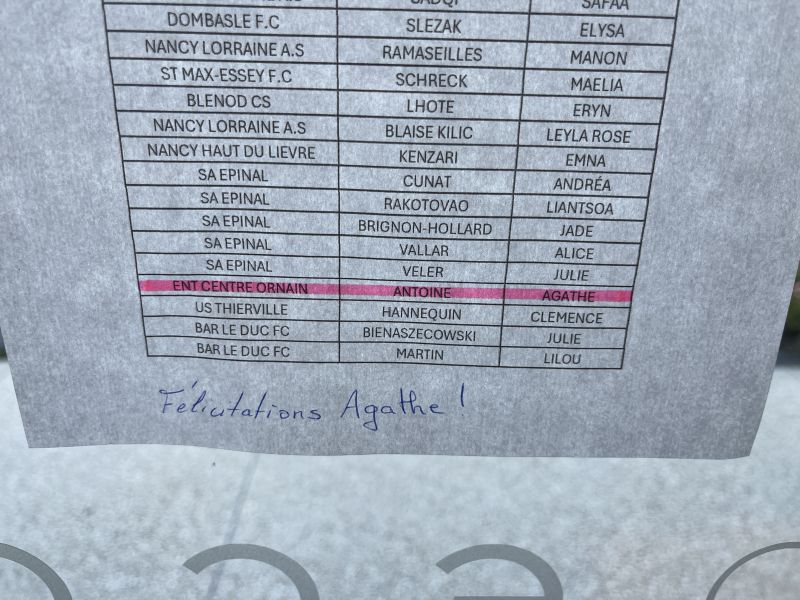 SAFAA
DOMBASLE F.C SLEZAK ELYSA
NANCY LORRAINE A.S RAMASEILLES MANON
ST MAX-ESSEY F.C SCHRECK MAELIA
BLENOD CS LHOTE ERYN
NANCY LORRAINE A.S BLAISE KILIC LEYLA ROSE
NANCY HAUT DU LIEVRE KENZARI EMNA
SA EPINAL CUNAT ANDRÉA
SA EPINAL RAKOTOVAO LIANTSOA
SA EPINAL BRIGNON-HOLLARD JADE
SA EPINAL VALLAR ALICE
SA EPINAL VELER JULIE
ENT CENTRE ORNAIN ANTOINE AGATHE
US THIERVILLE HANNEQUIN CLEMENCE
BAR LE DUC FC BIENASZECOWSKI JULIE
BAR LE DUC FC MARTIN LILOU
Félicitations Agathe !